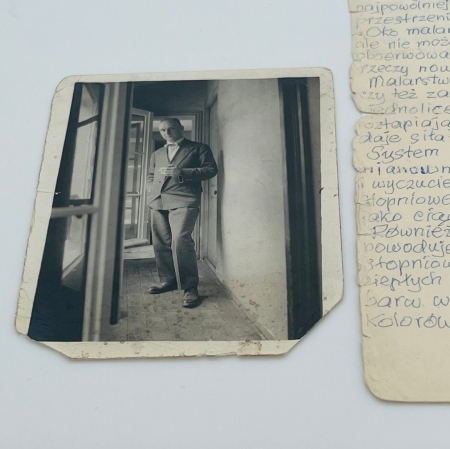 najpowolniej
przestrzeni
Oko malar
ale nie moż
obserwowa
rzeczy now
Malarstw
czy też za
jednolice
roztapiają
daje siła
System
wyczucie
stopniowe
jako ciąg
Również
powoduje
stopniow
ciepłych
barw w
kolorów